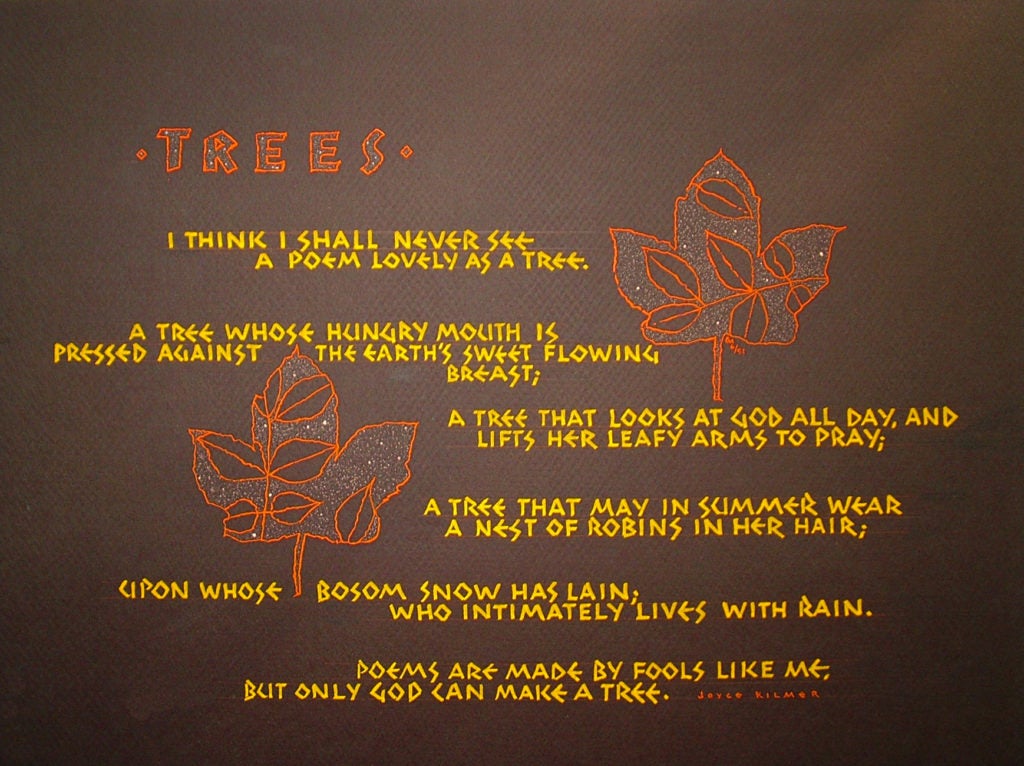 · TREES ·
I THINK I SHALL NEVER SEE
A POEM LOVELY AS A TREE.
A TREE WHOSE HUNGRY MOUTH IS
PRESSED AGAINST THE EARTH'S SWEET FLOWING
BREAST;
A TREE THAT LOOKS AT GOD ALL DAY, AND
LIFTS HER LEAFY ARMS TO PRAY;
A TREE THAT MAY IN SUMMER WEAR
A NEST OF ROBINS IN HER HAIR;
UPON WHOSE BOSOM SNOW HAS LAIN;
WHO INTIMATELY LIVES WITH RAIN.
POEMS ARE MADE BY FOOLS LIKE ME,
BUT ONLY GOD CAN MAKE A TREE. JOYCE KILMER